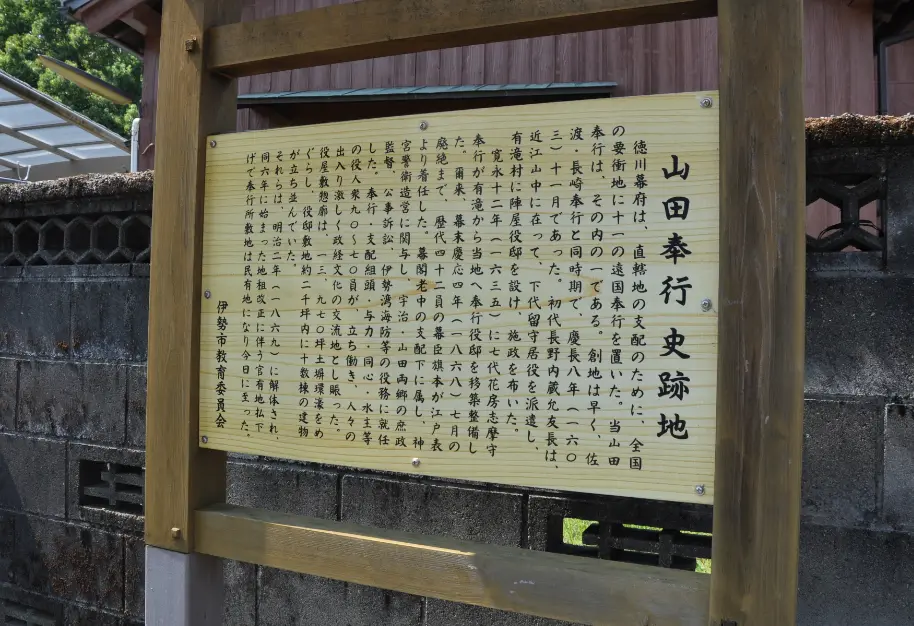 山田奉行史跡地
徳川幕府は、直轄地の支配のために、全国
の要衝地に十一の遠国奉行を置いた。当山田
奉行は、その内の一である。創地は早く、佐
渡・長崎奉行と同時期で、慶長八年（一六〇
三）十一月であった。初代長野内蔵允友長は、
近江山中に在って、下代留守居役を派遣し、
有滝村に陣屋役邸を設け、施政を布いた。
寛永十二年（一六三五）に七代花房志摩守
奉行が有滝から当地へ奉行役邸を移築整備し
た。爾来、幕末慶応四年（一八六八）七月の
廃絶まで、歴代四十二員の幕臣旗本が江戸表
より着任した。幕閣老中の支配下に属し、神
宮警衛造営に関与し、宇治・山田両郷の庶政
監督、公事訴訟、伊勢湾海防等の役務に就任
した。奉行、支配組頭・与力・同心・水主等
の役人衆九〇～七〇員が、立ち働き、人々の
出入り激しく政経文化の交流地とし賑った。
役屋敷惣廓は、一三、九七〇坪土塀環濠をめ
ぐらし、役邸敷地約二千坪内に十数棟の建物
が立ち並んでいた。
それらは、明治二年（一八六九）に解体され、
同六年に始まった地租改正に伴う官有地払下
げで奉行所敷地は民有地になり今日に至った。
伊勢市教育委員会